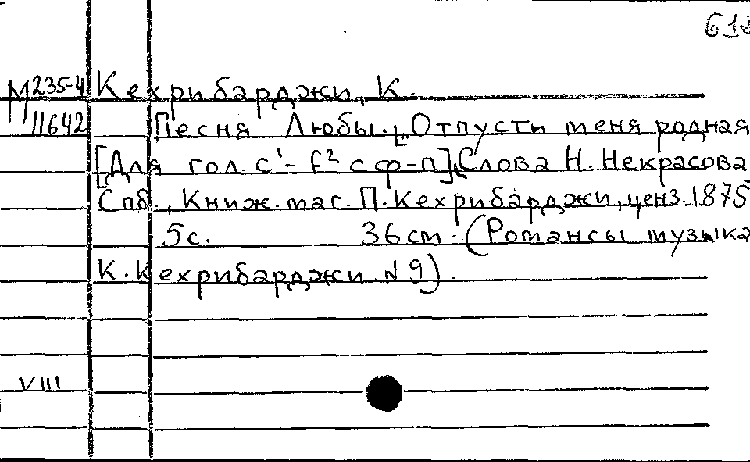 618
М 235-4 Кехрибарджи, К.
11642 Песня Любы. [Отпусти меня родная
[Для гол. с¹-f² с ф-п]. Слова Н. Некрасова
Спб., Книж. маг. П. Кехрибарджи, ценз. 1875
5с. 36см. (Романсы музыка
К. Кехрибарджи № 9).
VIII